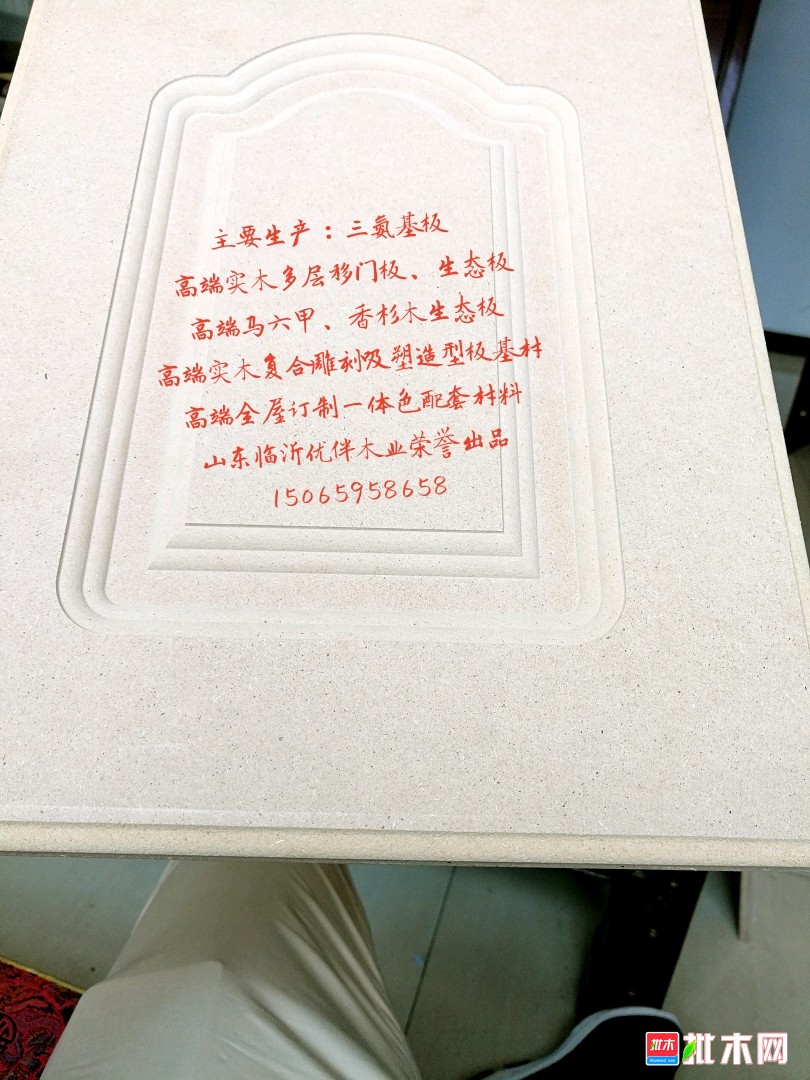 主要生产：三氨基板
高端实木多层移门板、生态板
高端马六甲、香杉木生态板
高端实木复合雕刻吸塑造型板基材
高端全屋订制一体色配套材料
山东临沂优伴木业荣誉出品
15065958658
批木 批木网